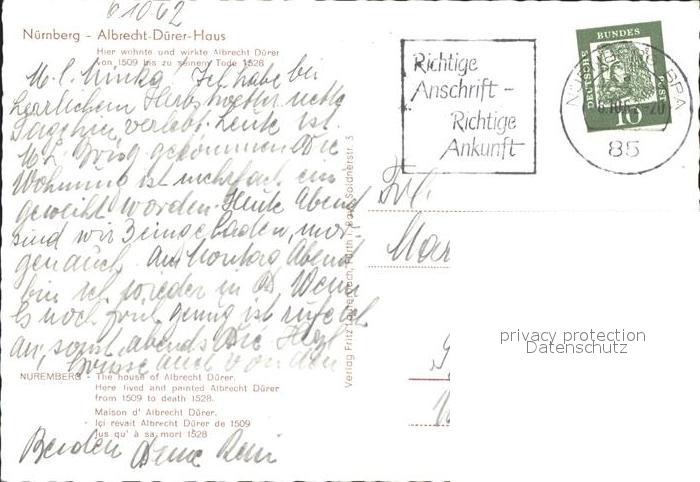 6.10.62
Nürnberg - Albrecht-Dürer-Haus
Hier wohnte und wirkte Albrecht Dürer
von 1509 bis zu seinem Tode 1528
M. l. Minka! Ich habe bei
herrlichem Herbstwetter nette
Tage hier verlebt. Heute ist
gekommen. Die
Wohnung ist mehrfach ein
geweiht worden. Heute Abend
sind wir 3 eingeladen, mor-
gen auch. Am Montag Abend
bin ich wieder in D. Wenn
es noch früh genug ist rufe ich
an, sonst abends. Die
Grüsse auch von den
NUREMBERG - The house of Albrecht Dürer.
Here lived and painted Albrecht Dürer
from 1509 to death 1528.
Maison d' Albrecht Dürer.
Içi revait Albrecht Dürer de 1509
jus qu' à sa mort 1528
Beiden Deine
Verlag Fritz Soldnerstr. 3
Richtige
Anschrift -
Richtige
Ankunft
DEUTSCHE BUNDESPOST
10
85
Frl.
Mar
privacy protection
Datenschutz